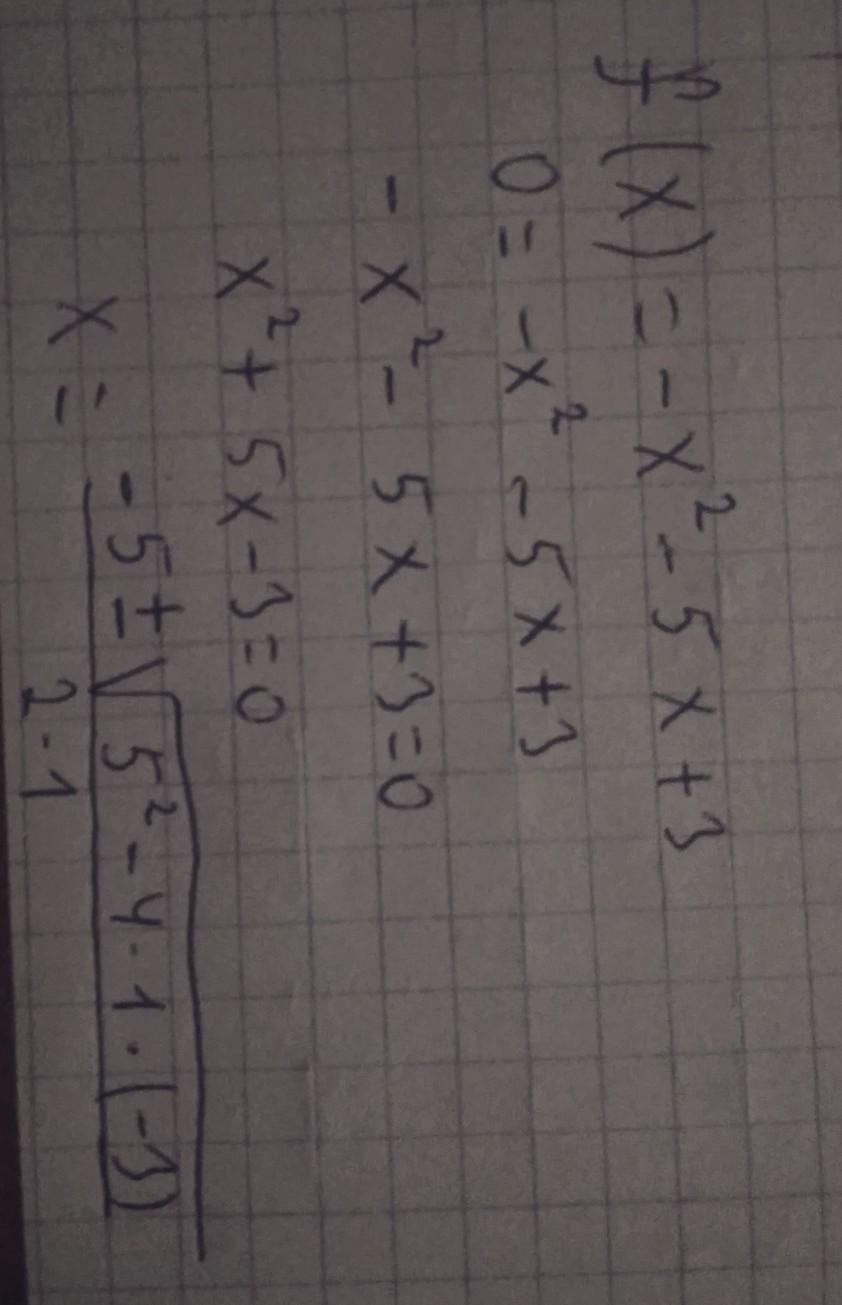 f(x) = -x² - 5x + 3
0 = -x² - 5x + 3
-x² - 5x + 3 = 0
x² + 5x - 3 = 0
x = (-5 ± √(5² - 4 · 1 · (-3))) / (2 · 1)